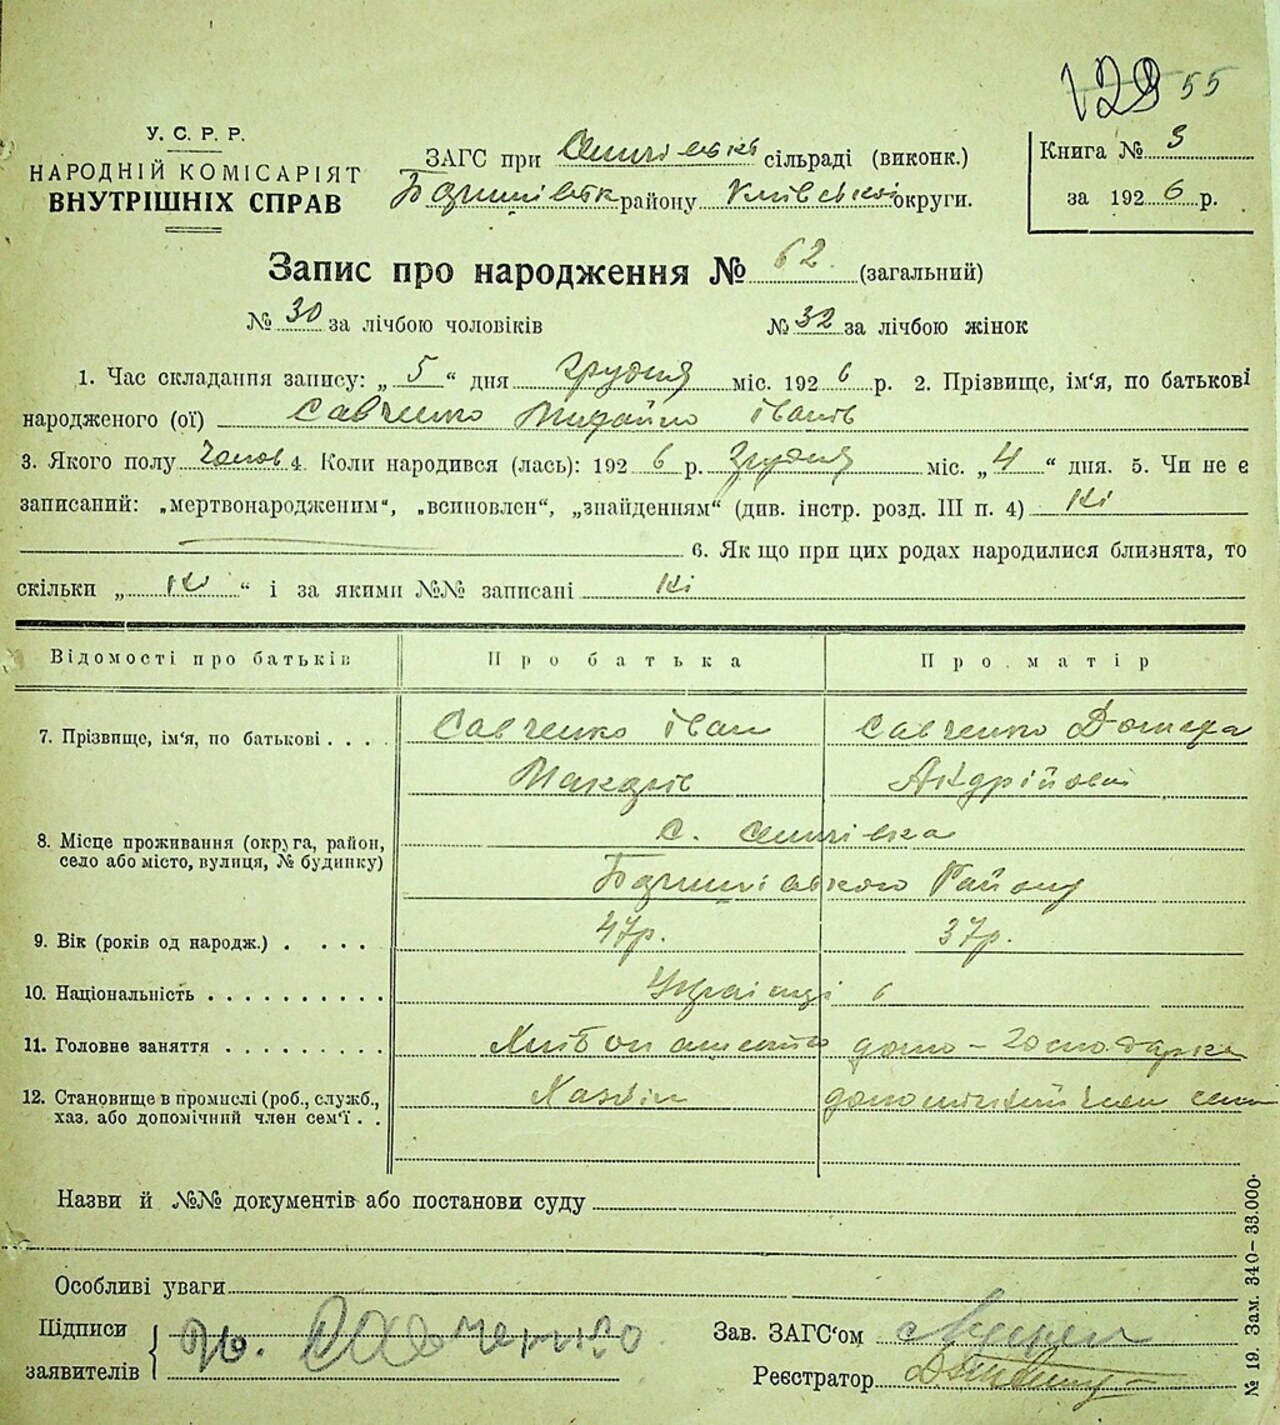 129 55
У. С. Р. Р.
НАРОДНІЙ КОМІСАРІЯТ
ВНУТРІШНІХ СПРАВ
ЗАГС при сільраді (виконк.)
району Київської округи.
Книга № 3
за 1926 р.
Запис про народження № 62 (загальний)
№ 30 за лічбою чоловіків № 32 за лічбою жінок
1. Час складання запису: „ 5 “ дня Грудня міс. 1926 р. 2. Прізвище, ім‘я, по батькові
народженого (ої) Савченко Михайло Іванів
3. Якого полу Чолов 4. Коли народився (лась): 1926 р. Грудня міс. „4“ дня. 5. Чи не є
записаний: „мертвонародженим“, „всиновлен“, „знайденням“ (див. інстр. розд. III п. 4) Ні
6. Як що при цих родах народилися близнята, то
скільки „ Ні “ і за якими №№ записані Ні
Відомості про батьків Про батька Про матір
7. Прізвище, ім‘я, по батькові . . . . Савченко Іван Савченко Домера
Андрійовні
8. Місце проживання (округа, район,
село або місто, вулиця, № будинку)
с.
Району
9. Вік (років од народж.) . . . . 47р. 37р.
10. Національність . . . . . . . . . . Українці
11. Головне заняття . . . . . . . . . домо-господарка
12. Становище в промислі (роб., служб.,
хаз. або допомічний член сем‘ї . .
Хазяін допоміжний член сем
Назви й №№ документів або постанови суду
Особливі уваги
Підписи
заявителів
Савченко
Зав. ЗАГС‘ом
Реєстратор
№ 19. Зам. 340—33.000.